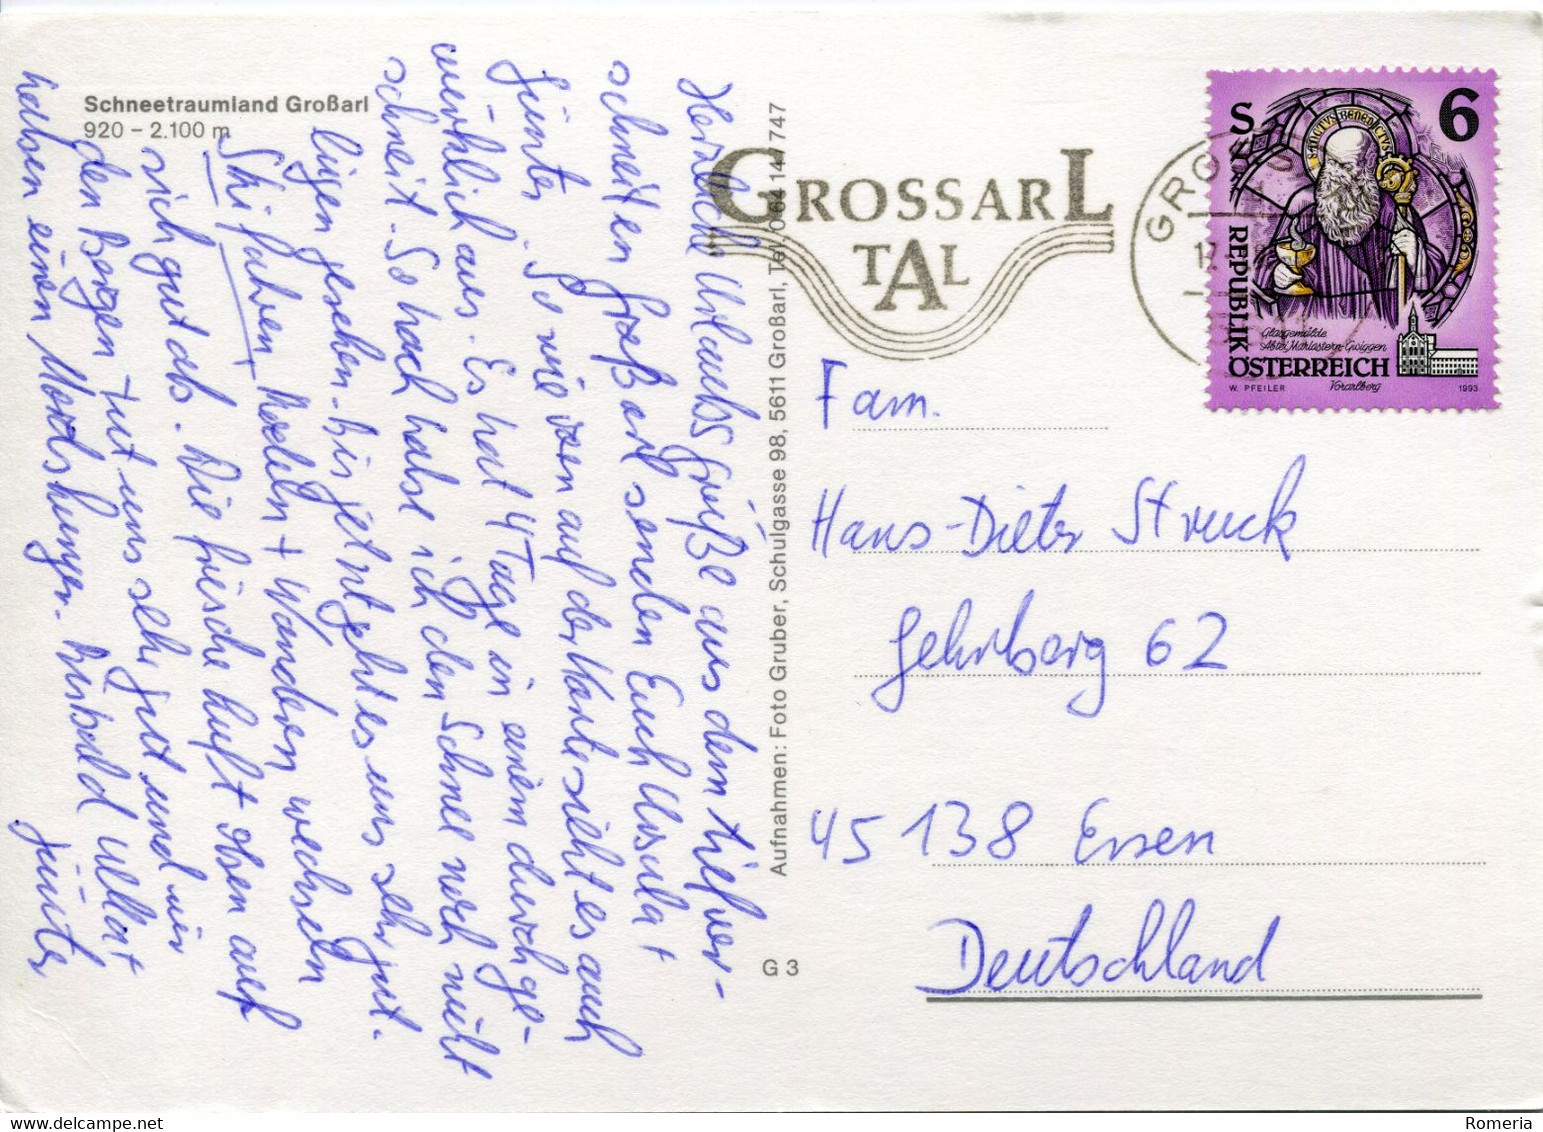 Schneetraumland Großarl
920 – 2.100 m
Herzliche Urlaubsgrüße aus dem tiefver-
schneiten Großarl senden Euch Ursula +
Günter. So wie vorn auf der Karte sieht es auch
wirklich aus. Es hat 4 Tage in einem durchge-
schneit. So hoch habe ich den Schnee noch nicht
liegen gesehen. Bis jetzt geht es uns sehr gut.
Skifahren, Rodeln + Wandern wechseln
sich gut ab. Die frische Luft oben auf
den Bergen tut uns sehr gut und wir
haben einen Mordshunger. Bis bald
Günter
Aufnahmen: Foto Gruber, Schulgasse 98, 5611 Großarl, Tel. 0 64 14 / 7747
G 3
GROSSARL
TAL
S 6
SANCTVS BENEDICTVS
REPUBLIK
ÖSTERREICH
Glasgemälde
Abtei Mariastern-Gwiggen
Vorarlberg
W. PFEILER
1993
Fam.
Hans-Dieter Struck
Gehrberg 62
45138 Essen
Deutschland
www.delcampe.net
Romeria